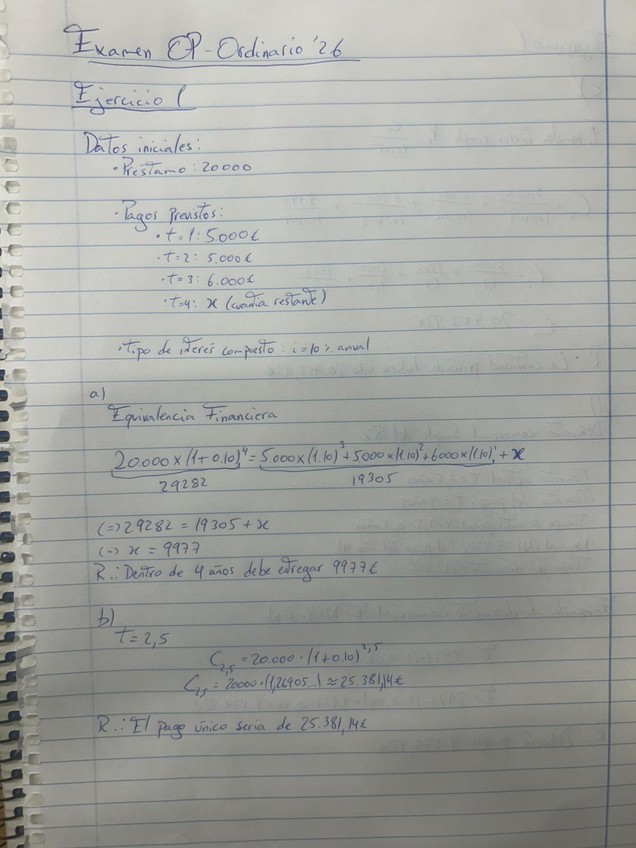 Examen OP-Ordinario '26
Ejercicio 1
Datos iniciales:
· Préstamo: 20000
· Pagos previstos:
· t=1: 5.000€
· t=2: 5.000€
· t=3: 6.000€
· t=4: x (cuantía restante)
· Tipo de interés compuesto: i=10% anual
a)
Equivalencia Financiera
20.000×(1+0.10)⁴=5.000×(1.10)³+5000×(1.10)²+6000×(1.10)¹+x
29282 19305
(=>29282 = 19305+x
(=> x = 9977
R.: Dentro de 4 años debe etregar 9977€
b)
t=2,5
C₂,₅=20.000·(1+0.10)²,⁵
C₂,₅= 20000·(1,26905...) ≈25.381,14€
R.: El pago único seria de 25.381,14€